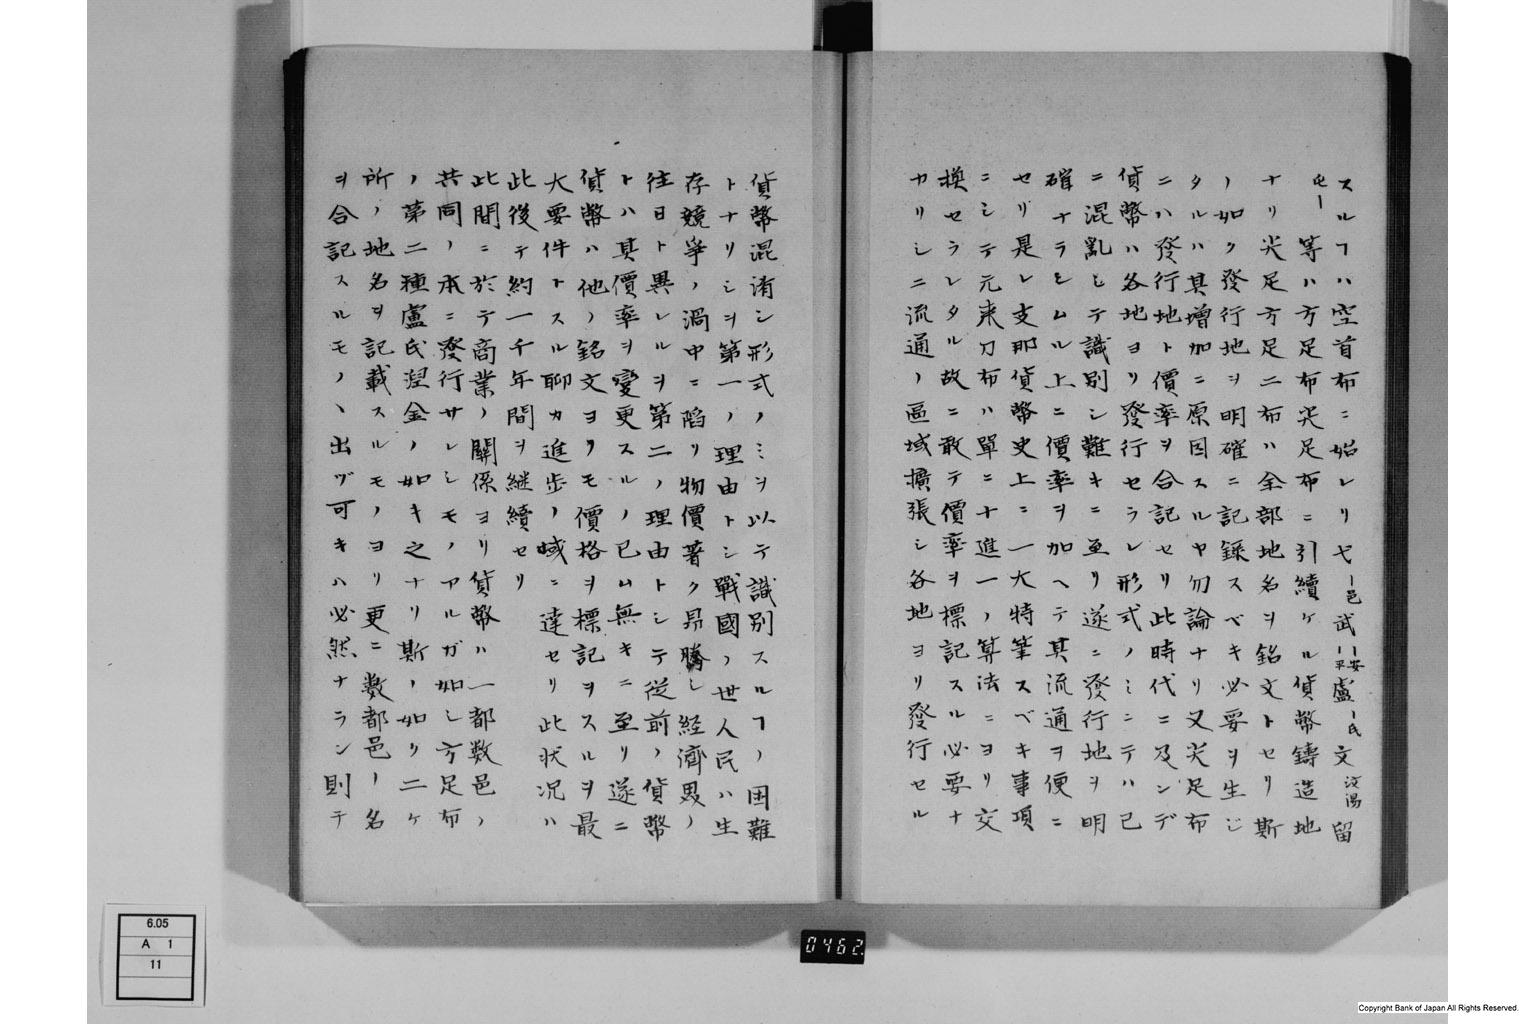 スルヿハ空首布ニ始レリセ一邑武一安一平盧一氏文汶陽留
屯一等ハ方足布尖足布ニ引續ケル貨幣鑄造地
ナリ尖足方足二布ハ全部地名ヲ銘文トセリ斯
ノ如ク發行地ヲ明確ニ記錄スベキ必要ヲ生ジ
タルハ其增加ニ原因スルヤ勿論ナリ又尖足布
ニハ發行地ト價率ヲ合記セリ此時代ニ及ンデ
貨幣ハ各地ヨリ發行セラレ形式ノミニテハ已
ニ混亂シテ識別シ難キニ至リ遂ニ發行地ヲ明
確ナラシムル上ニ價率ヲ加ヘテ其流通ヲ便ニ
セリ是レ支那貨幣史上ニ一大特筆スベキ事項
ニシテ元来刀布ハ單ニ十進一ノ算法ニヨリ交
換セラレタル故ニ敢テ價率ヲ標記スル必要ナ
カリシニ流通ノ區域擴張シ各地ヨリ發行セル
貨幣混淆シ形式ノミヲ以テ識別スルヿノ困難
トナリシヲ第一ノ理由トシ戰國ノ世人民ハ生
存競爭ノ渦中ニ陷リ物價著ク昂騰シ経濟界ノ
往日ト異レルヲ第二ノ理由トシテ從前ノ貨幣
トハ其價率ヲ變更スルノ已ム無キニ至リ遂ニ
貨幣ハ他ノ銘文ヨリモ價格ヲ標記ヲスルヲ最
大要件トスル聊カ進步ノ域ニ達セリ此状況ハ
此後テ約一千年間ヲ継續セリ
此間ニ於テ商業ノ關係ヨリ貨幣ハ一都数邑ノ
共同ノ本ニ發行サレシモノアルガ如シ方足布
ノ第二種盧氏涅金ノ如キ之ナリ斯ノ如リ二ケ
所ノ地名ヲ記載スルモノヨリ更ニ數都邑ノ名
ヲ合記スルモノヽ出ヅ可キハ必然ナラン則テ
0462
6.05
A 1
11
Copyright Bank of Japan All Rights Reserved.